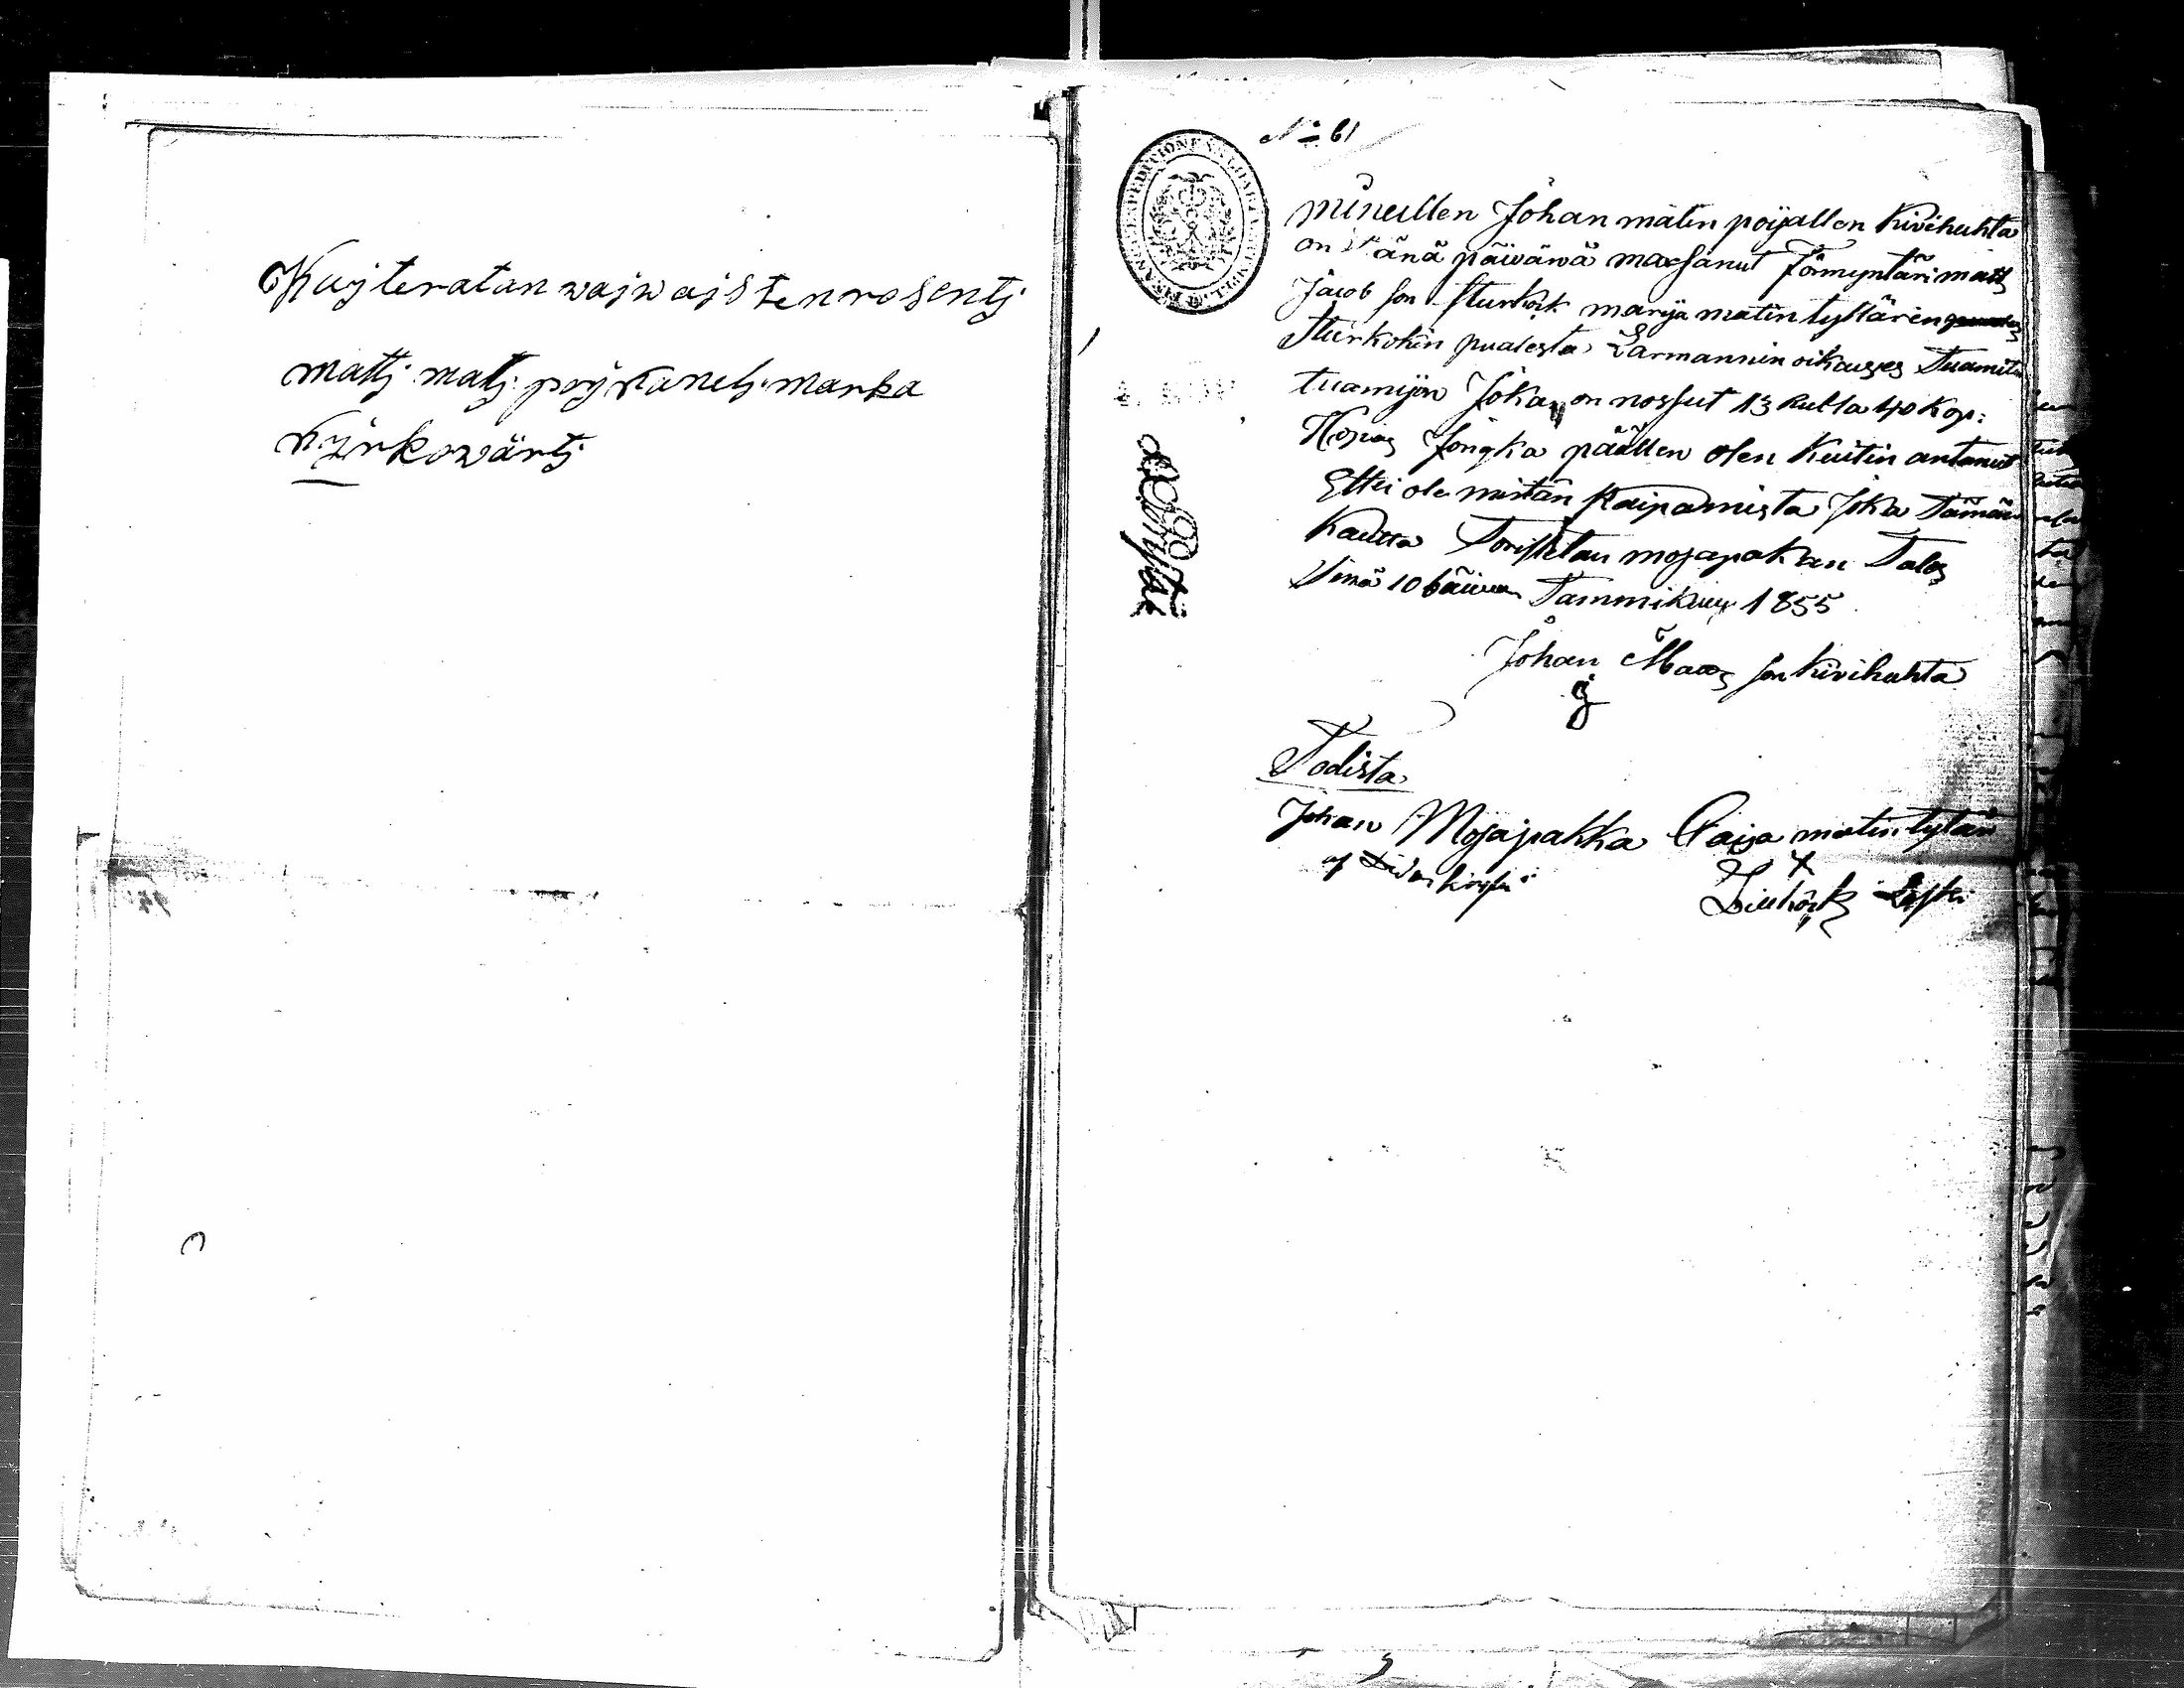 Kujteratan wajwajsten rosentj
mattj matj pojkanelj marka
Kyrkowärtj
No 61
minullen Johan matin poijallen Kivihuhta
on Tänä päiwänä maxsanut Förmyntäri matts
Jacob son Sturkörk marija matin tyttären
Sturkohin pualesta Larmannin oikauses Tuamitu
tuamijon Joka on nossut 13 Rubla 40 Kop:
Hopias Jongka päällen olen Kuitin antanut
Ettei ole mitän Kaipamista Joka Tämän
Kautta Toristetan mojapakan Talos
Sinä 10 päiwän Tammikuus 1855
Johan Matts son Kivihuhta
Todista
Johan Mojapakka Caisa matin tytär
Leski